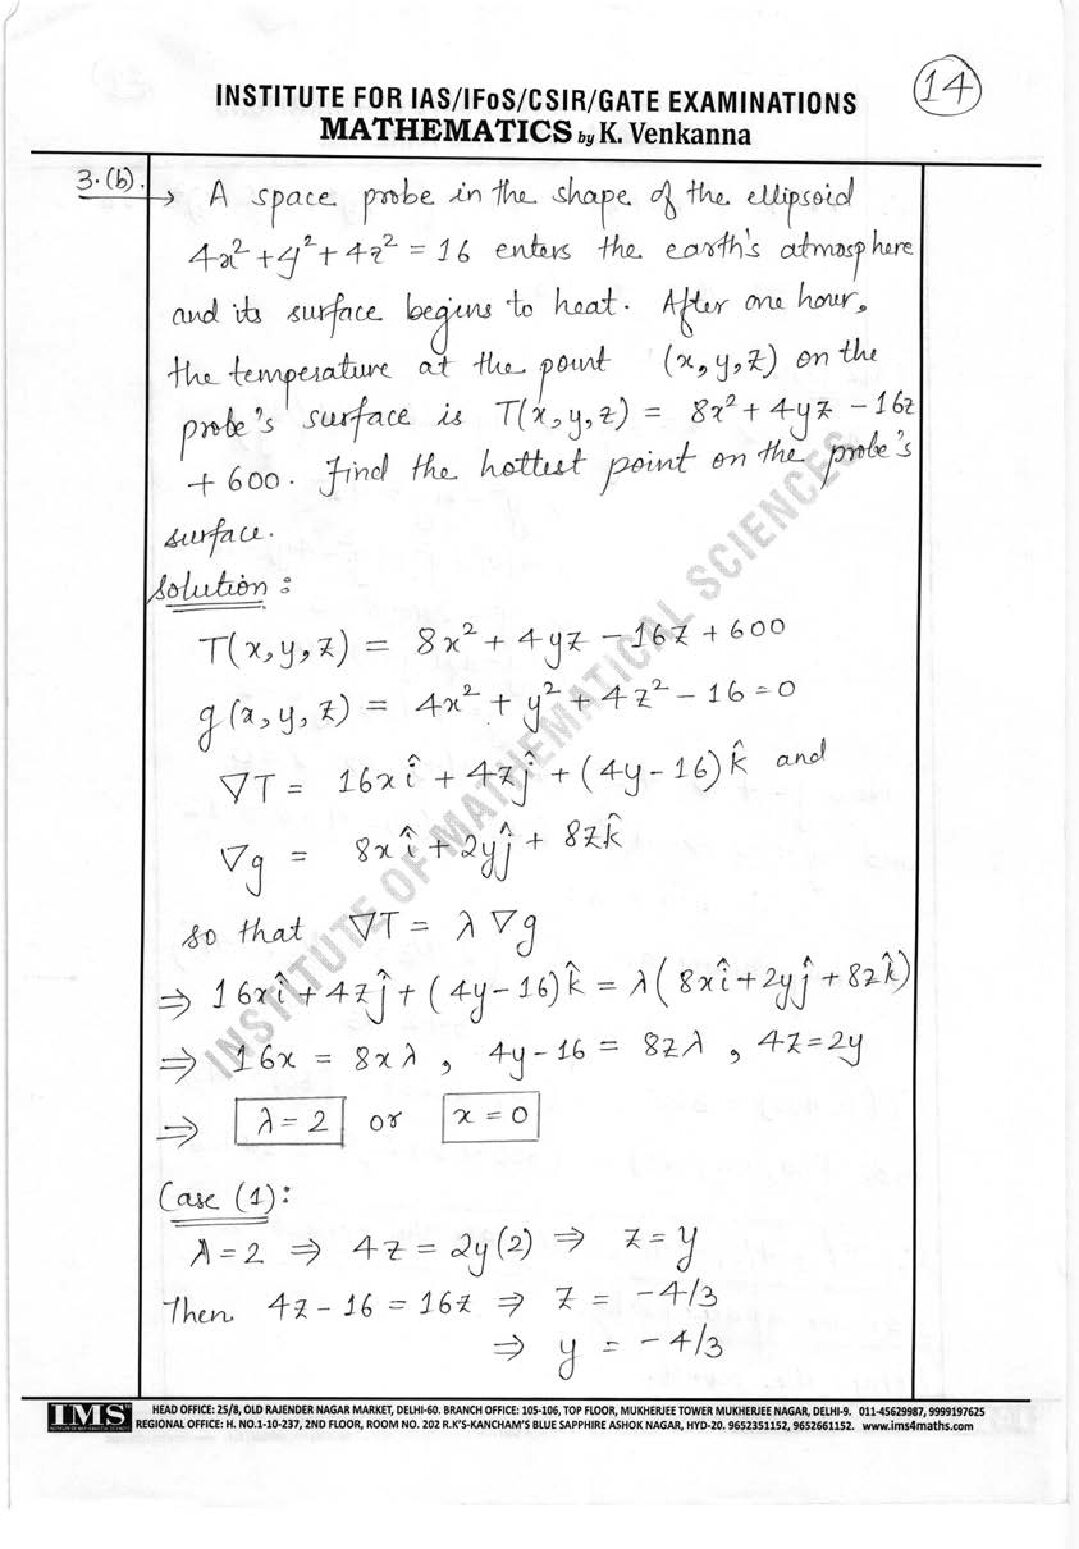 14
INSTITUTE FOR IAS/IFoS/CSIR/GATE EXAMINATIONS
MATHEMATICS by K. Venkanna
3.(b). → A space probe in the shape of the ellipsoid
4x² + y² + 4z² = 16 enters the earth's atmosphere
and its surface begins to heat. After one hour,
the temperature at the point (x, y, z) on the
probe's surface is T(x, y, z) = 8x² + 4yz - 16z
+ 600. Find the hottest point on the probe's
surface.
Solution:
T(x, y, z) = 8x² + 4yz - 16z + 600
g(x, y, z) = 4x² + y² + 4z² - 16 = 0
∇T = 16xî + 4zĵ + (4y-16)k̂ and
∇g = 8xî + 2yĵ + 8zk̂
so that ∇T = λ∇g
⇒ 16xî + 4zĵ + (4y-16)k̂ = λ(8xî + 2yĵ + 8zk̂)
⇒ 16x = 8xλ, 4y-16 = 8zλ, 4z=2y
⇒ λ=2 or x=0
Case (1):
λ=2 ⇒ 4z = 2y(2) ⇒ z=y
Then 4z-16 = 16z ⇒ z = -4/3
⇒ y = -4/3
INSTITUTE OF MATHEMATICAL SCIENCES
IMS
HEAD OFFICE: 25/8, OLD RAJENDER NAGAR MARKET, DELHI-60. BRANCH OFFICE: 105-106, TOP FLOOR, MUKHERJEE TOWER MUKHERJEE NAGAR, DELHI-9. 011-45629987, 9999197625
REGIONAL OFFICE: H. NO.1-10-237, 2ND FLOOR, ROOM NO. 202 R.K'S-KANCHAM'S BLUE SAPPHIRE ASHOK NAGAR, HYD-20. 9652351152, 9652661152. www.ims4maths.com